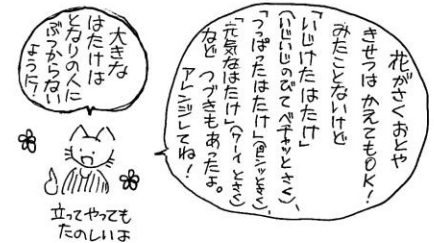 花がさくおとや
きせつは かえてもOK!
みたことないけど
「いじけたはたけ」
(いじいじのびて ペチャッとさく)、
「つっぱったはたけ」(ピンッとさく)、
「元気なはたけ」(ワーイとさく)
など つづきもあったよ。
アレンジしてね!
大きな
はたけは
となりの人に
ぶつからない
ように!
立ってやっても
たのしいよ